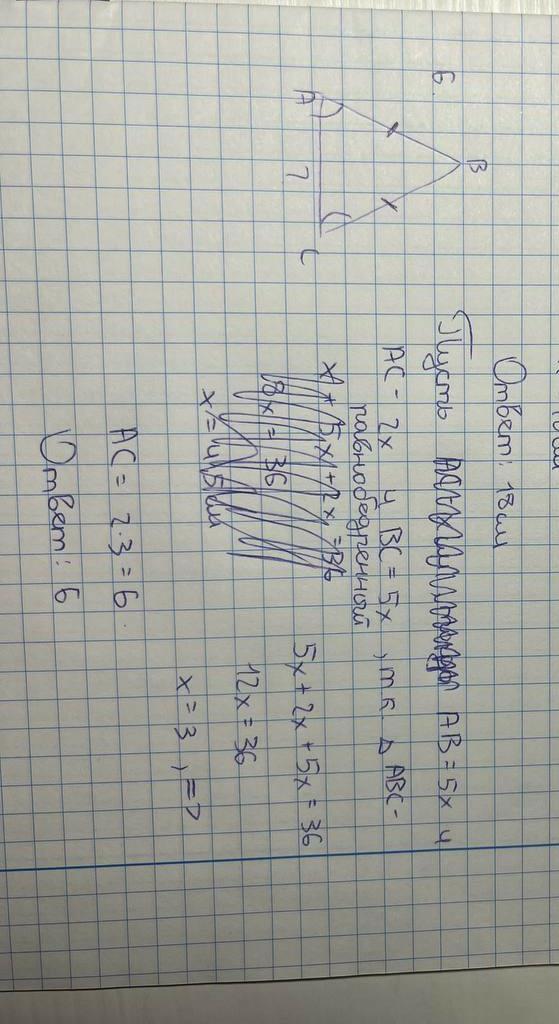 Ответ: 18 см
6.
B
A
?
C
Пусть AB = 5x и
AC - 2x и BC = 5x, т.к. △ ABC -
равнобедренный
x + 5x + 2x = 36
8x = 36
x = 4,5 см
5x + 2x + 5x = 36
12x = 36
x = 3, =>
AC = 2·3 = 6.
Ответ: 6